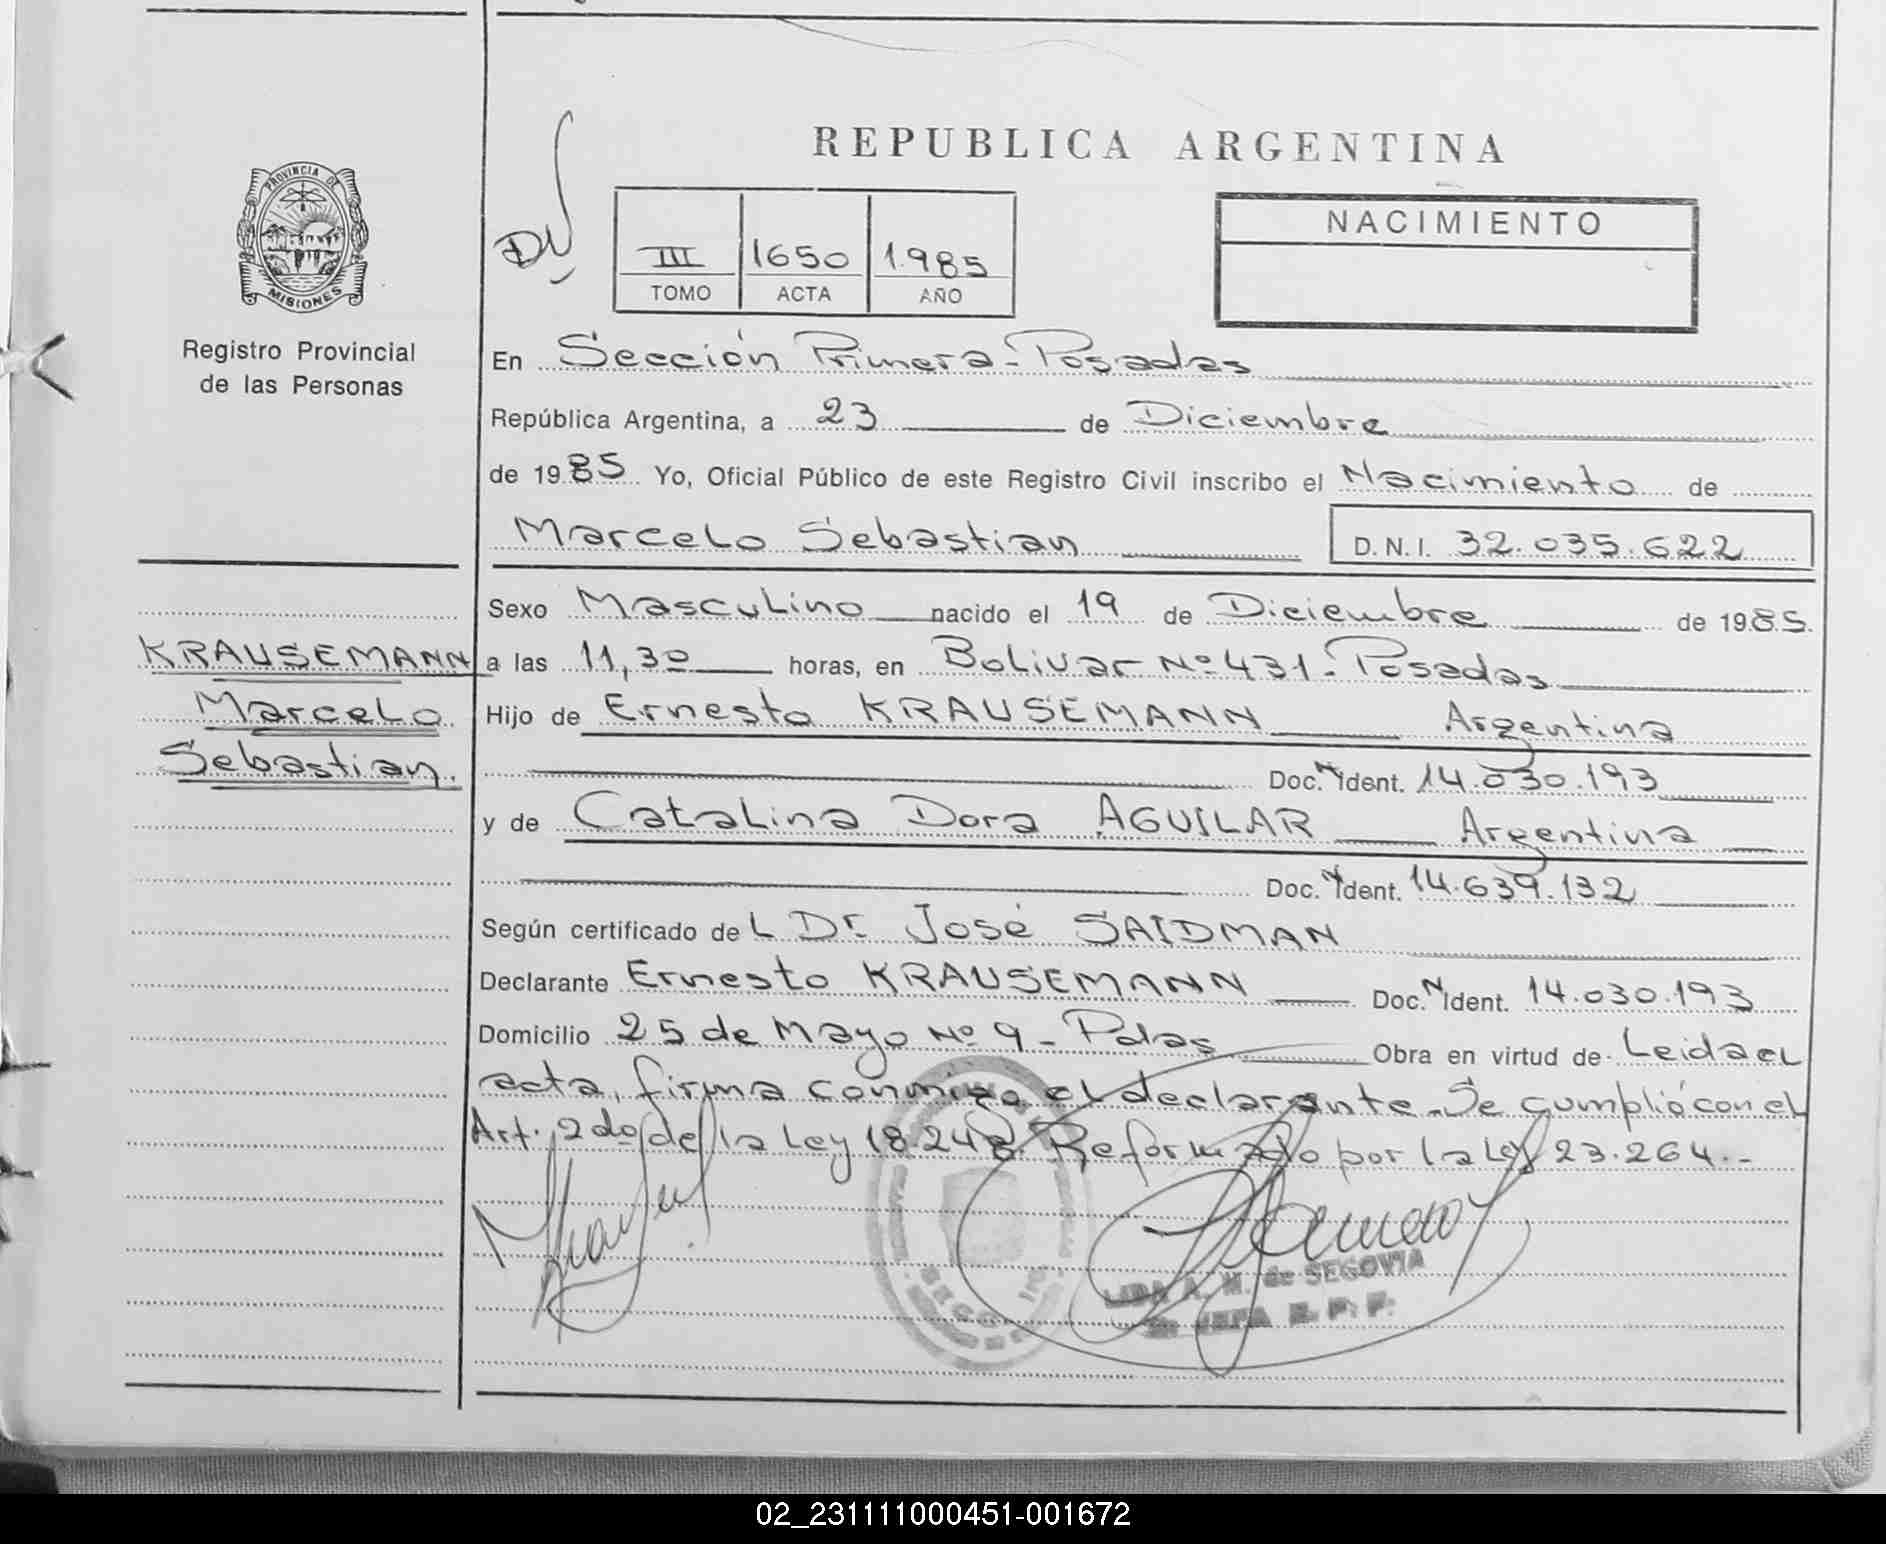 REPUBLICA ARGENTINA
PROVINCIA DE
MISIONES
Registro Provincial
de las Personas
III 1650 1.985
TOMO ACTA AÑO
NACIMIENTO
En Sección Primera - Posadas
República Argentina, a 23 de Diciembre
de 1985 Yo, Oficial Público de este Registro Civil inscribo el Nacimiento de
Marcelo Sebastian D.N.I. 32.035.622
Sexo Masculino nacido el 19 de Diciembre de 1985.
KRAUSEMANN
Marcelo
Sebastian.
a las 11,30 horas, en Bolivar Nº 431 - Posadas
Hijo de Ernesto KRAUSEMANN Argentina
Doc. N Ident. 14.030.193
y de Catalina Dora AGUILAR Argentina
Doc. N Ident. 14.639.132
Según certificado de L Dr. José SAIDMAN
Declarante Ernesto KRAUSEMANN Doc. N Ident. 14.030.193
Domicilio 25 de Mayo Nº 9 - Pdas Obra en virtud de Leida el
acta, firma conmigo el declarante. Se cumplió con el
Art. 2do de la Ley 18.248 Reformado por la Ley 23.264.-
de SEGOVIA
02_231111000451-001672